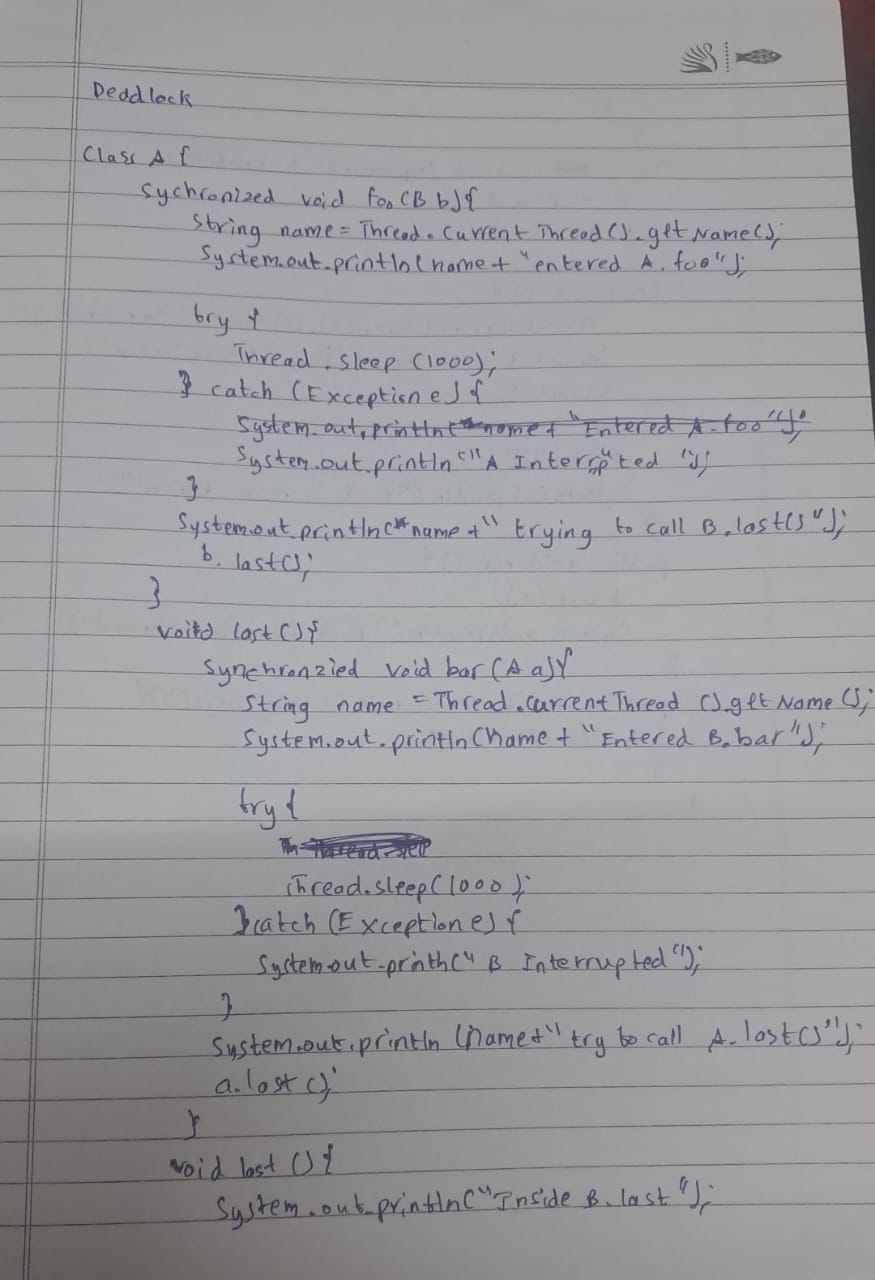 Deadlock
Class A {
Sychronized void foo (B b) {
String name = Thread.currentThread().getName();
System.out.println(name + "entered A.foo");
try {
Thread.sleep (1000);
} catch (Exception e) {
System.out.println(name + "Entered A.foo");
System.out.println("A Interrupted");
}
System.out.println(name +" trying to call B.last()");
b. last();
}
void last () {
Synchronzied void bar (A a) {
String name = Thread.currentThread ().getName ();
System.out.println(name + "Entered B.bar");
try {
Thread.sleep(1000);
}catch (Exception e) {
System.out.println(" B Interrupted");
}
System.out.println (name+" try to call A.last()");
a.last();
}
void last () {
System.out.println("Inside B.last");